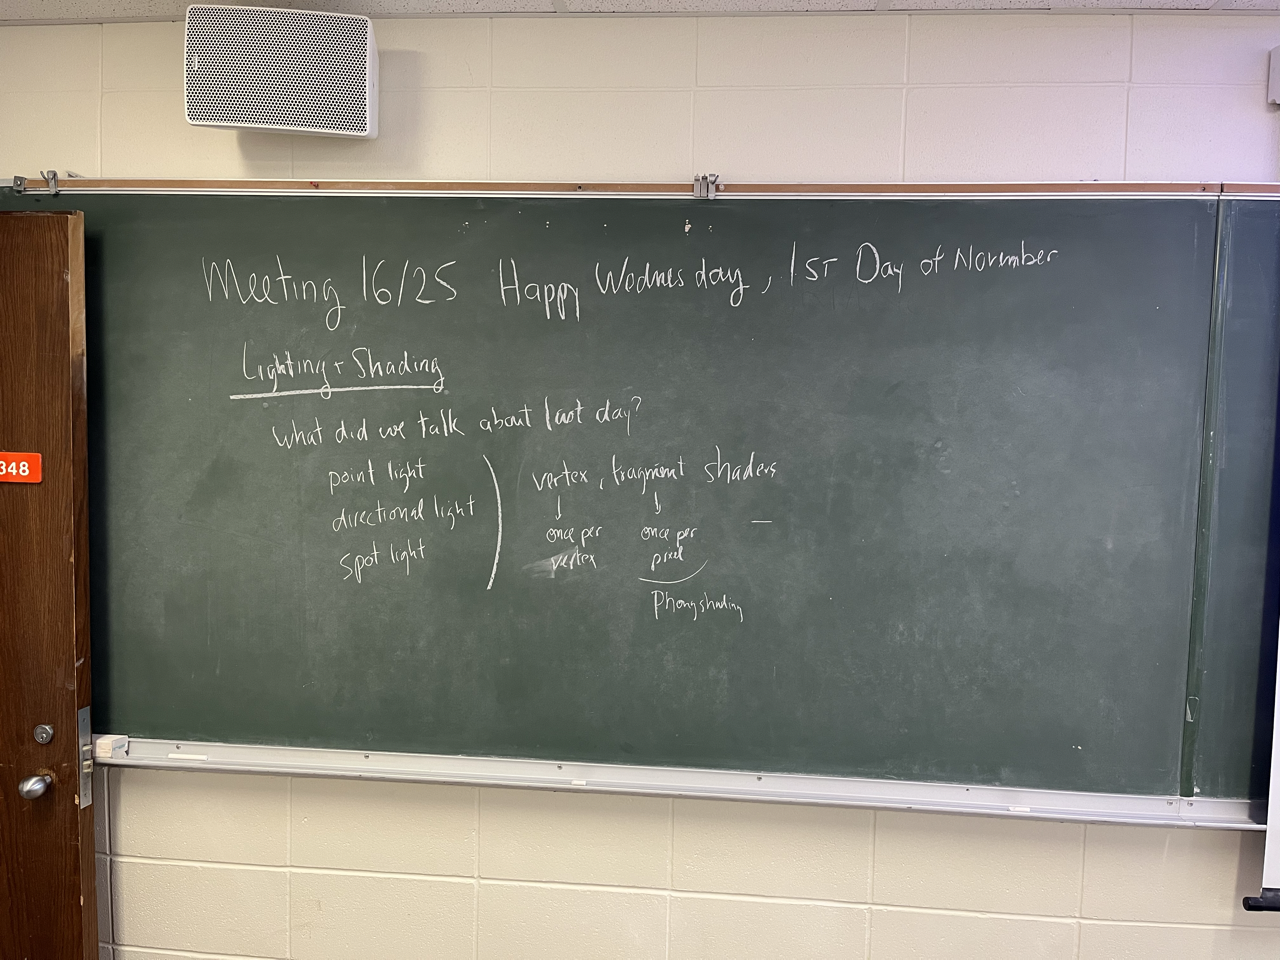 Meeting 16/25 Happy Wednesday, 1ST Day of November
Lighting + Shading
What did we talk about last day?
point light
directional light
spot light
vertex, fragment shaders
↓ ↓
once per
vertex
once per
pixel
Phong shading
348